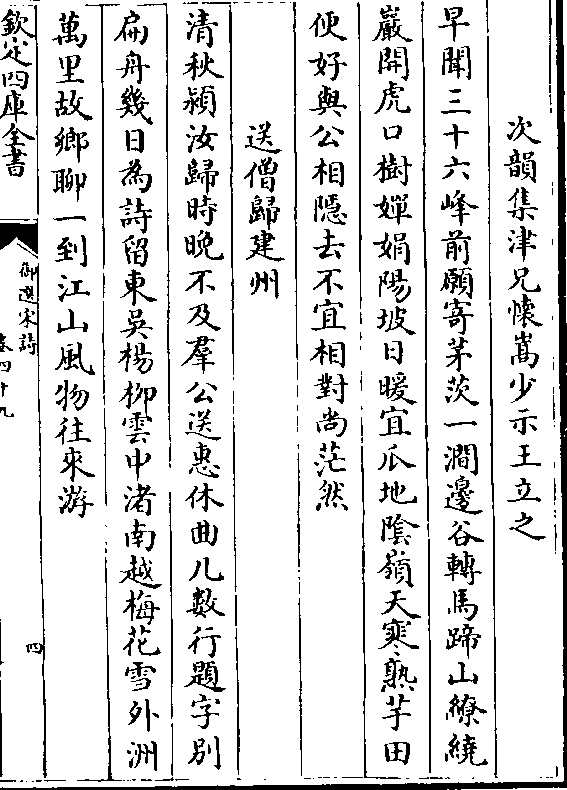 次韻集津兄懐嵩少示王立之
早聞三十六峰前願寄茅茨一澗邊谷轉馬蹄山繚繞
巖開虎口樹嬋娟陽坡日暖宜瓜地陰嶺天寒熟芋田
便好與公相隠去不宜相對尚茫然
送僧歸建州
清秋潁汝歸時晩不及羣公送惠休曲几數行題字别
扁舟幾日為詩留東吳楊柳雲中渚南越梅花雪外洲
萬里故鄉聊一到江山風物往來游
欽定四庫全書
御選宋詩
卷四十九
四